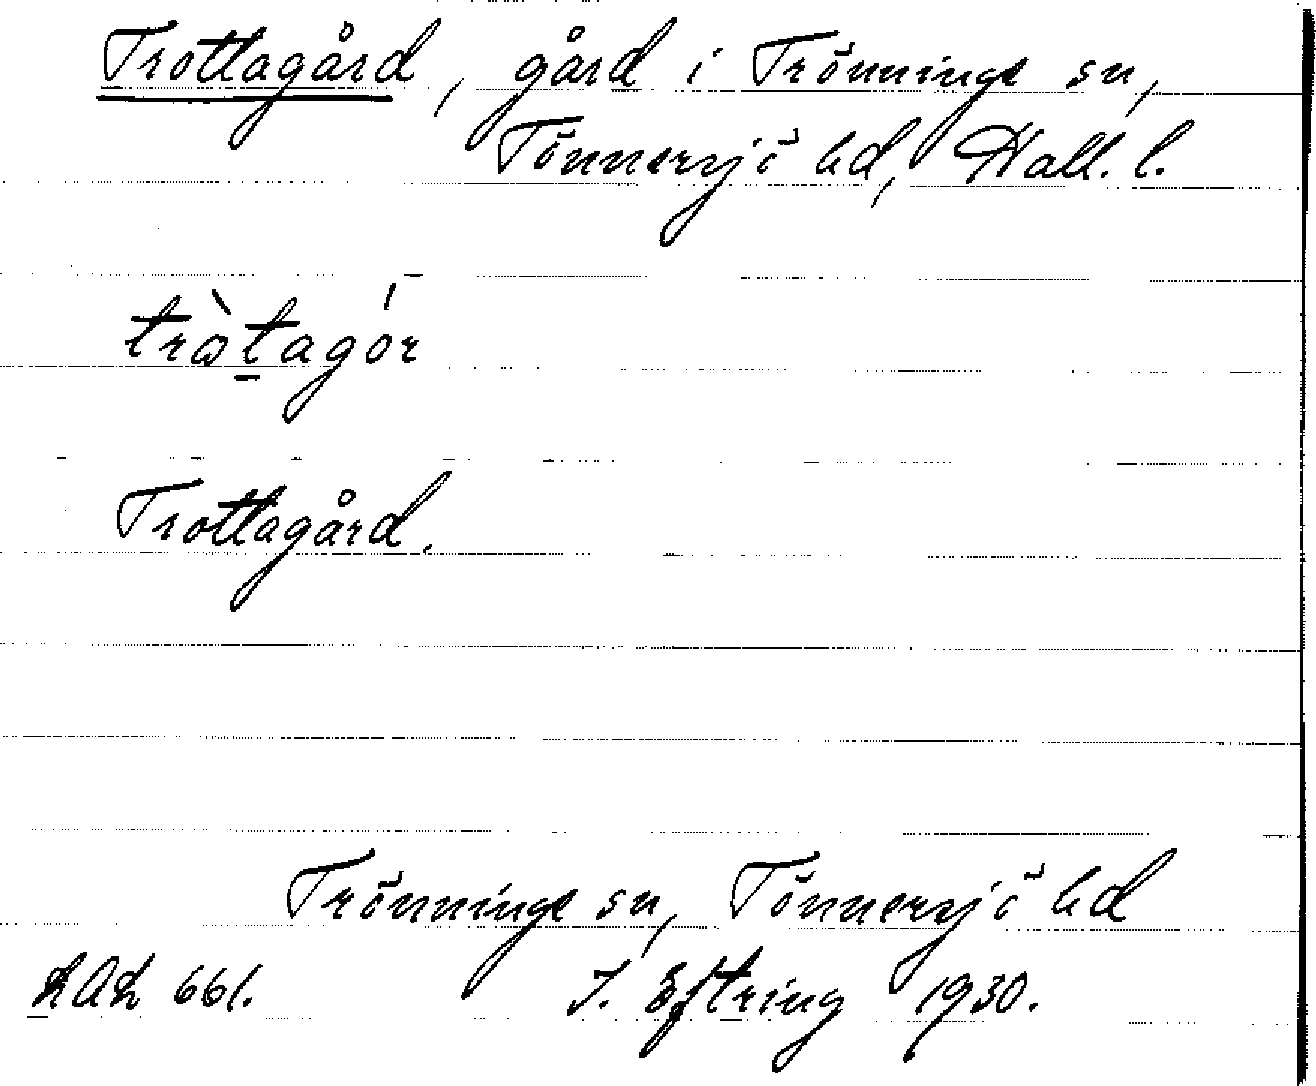 Trottagård, gård i Trönninge sn,
Tönnersjö hd, Hall. l.
tròtagór
Trottagård.
Trönninge sn, Tönnersjö hd
LAL 661. J. Eftring 1930.